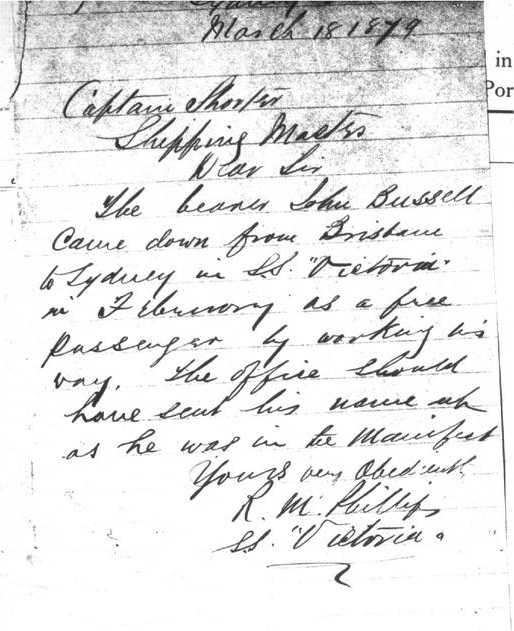 Sydney
March 18 1879
in
Por
Captain Shorter
Shipping Master
Dear Sir
The bearer John Bussell
Came down from Brisbane
to Sydney in S.S. "Victoria"
in February as a free
passenger by working his
way. The office should
have sent his name up
as he was in the Manifest
Yours very Obedient
R. M. Phillips
S.S. "Victoria"